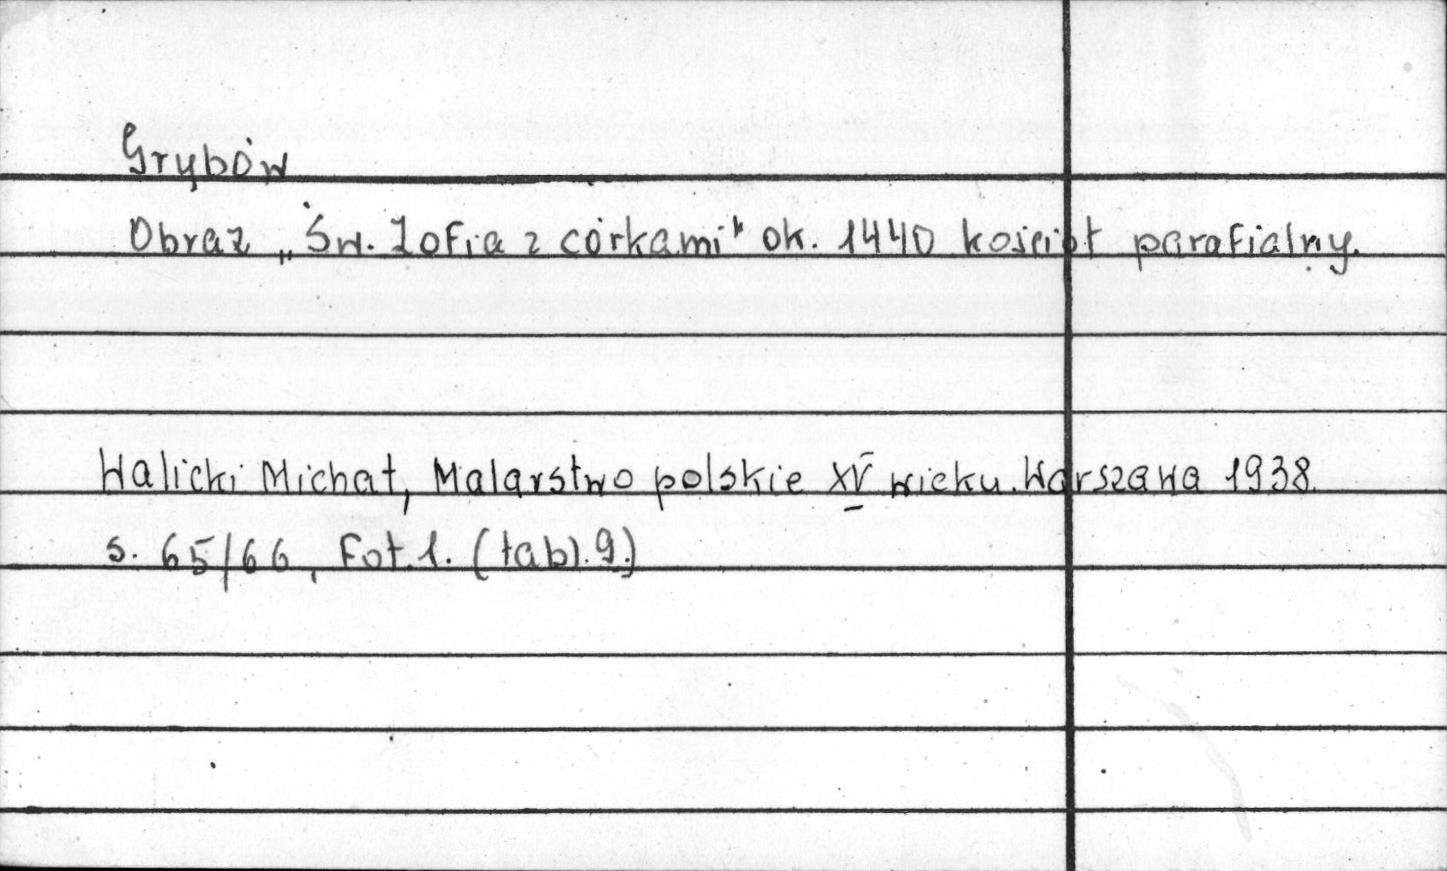 Grybów
Obraz „Św. Zofia z córkami" ok. 1440 kościół parafialny.
Walicki Michał, Malarstwo polskie XV wieku. Warszawa 1938.
s. 65/66, Fot. 1. (tabl. 9.)